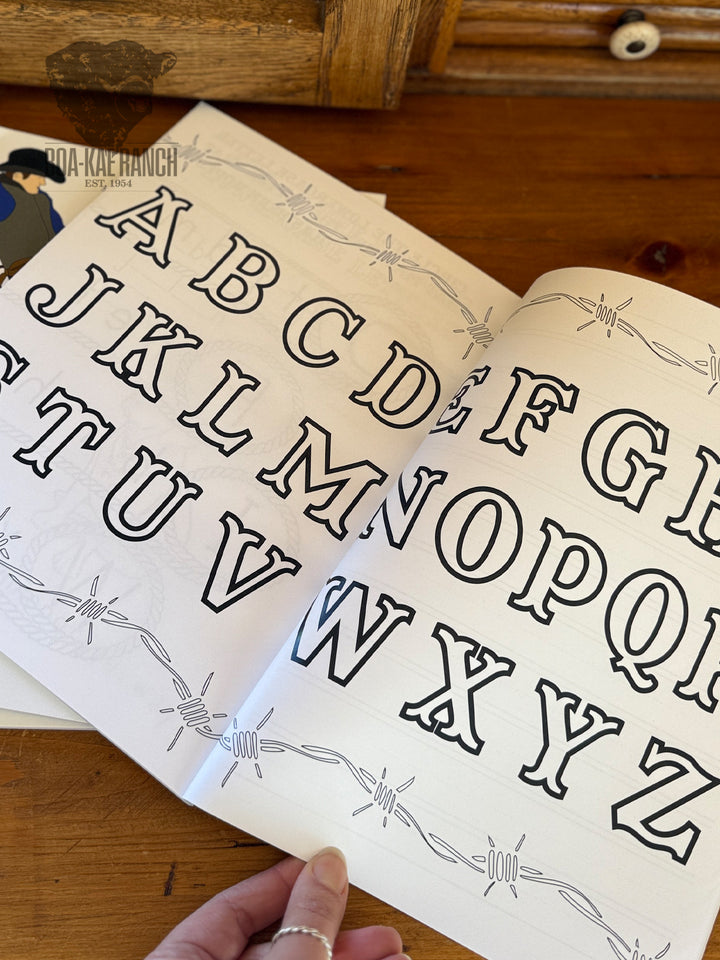 ROA-KAE RANCH
EST. 1954
A B C D E F G H
J K L M N O P Q R
S T U V W X Y Z